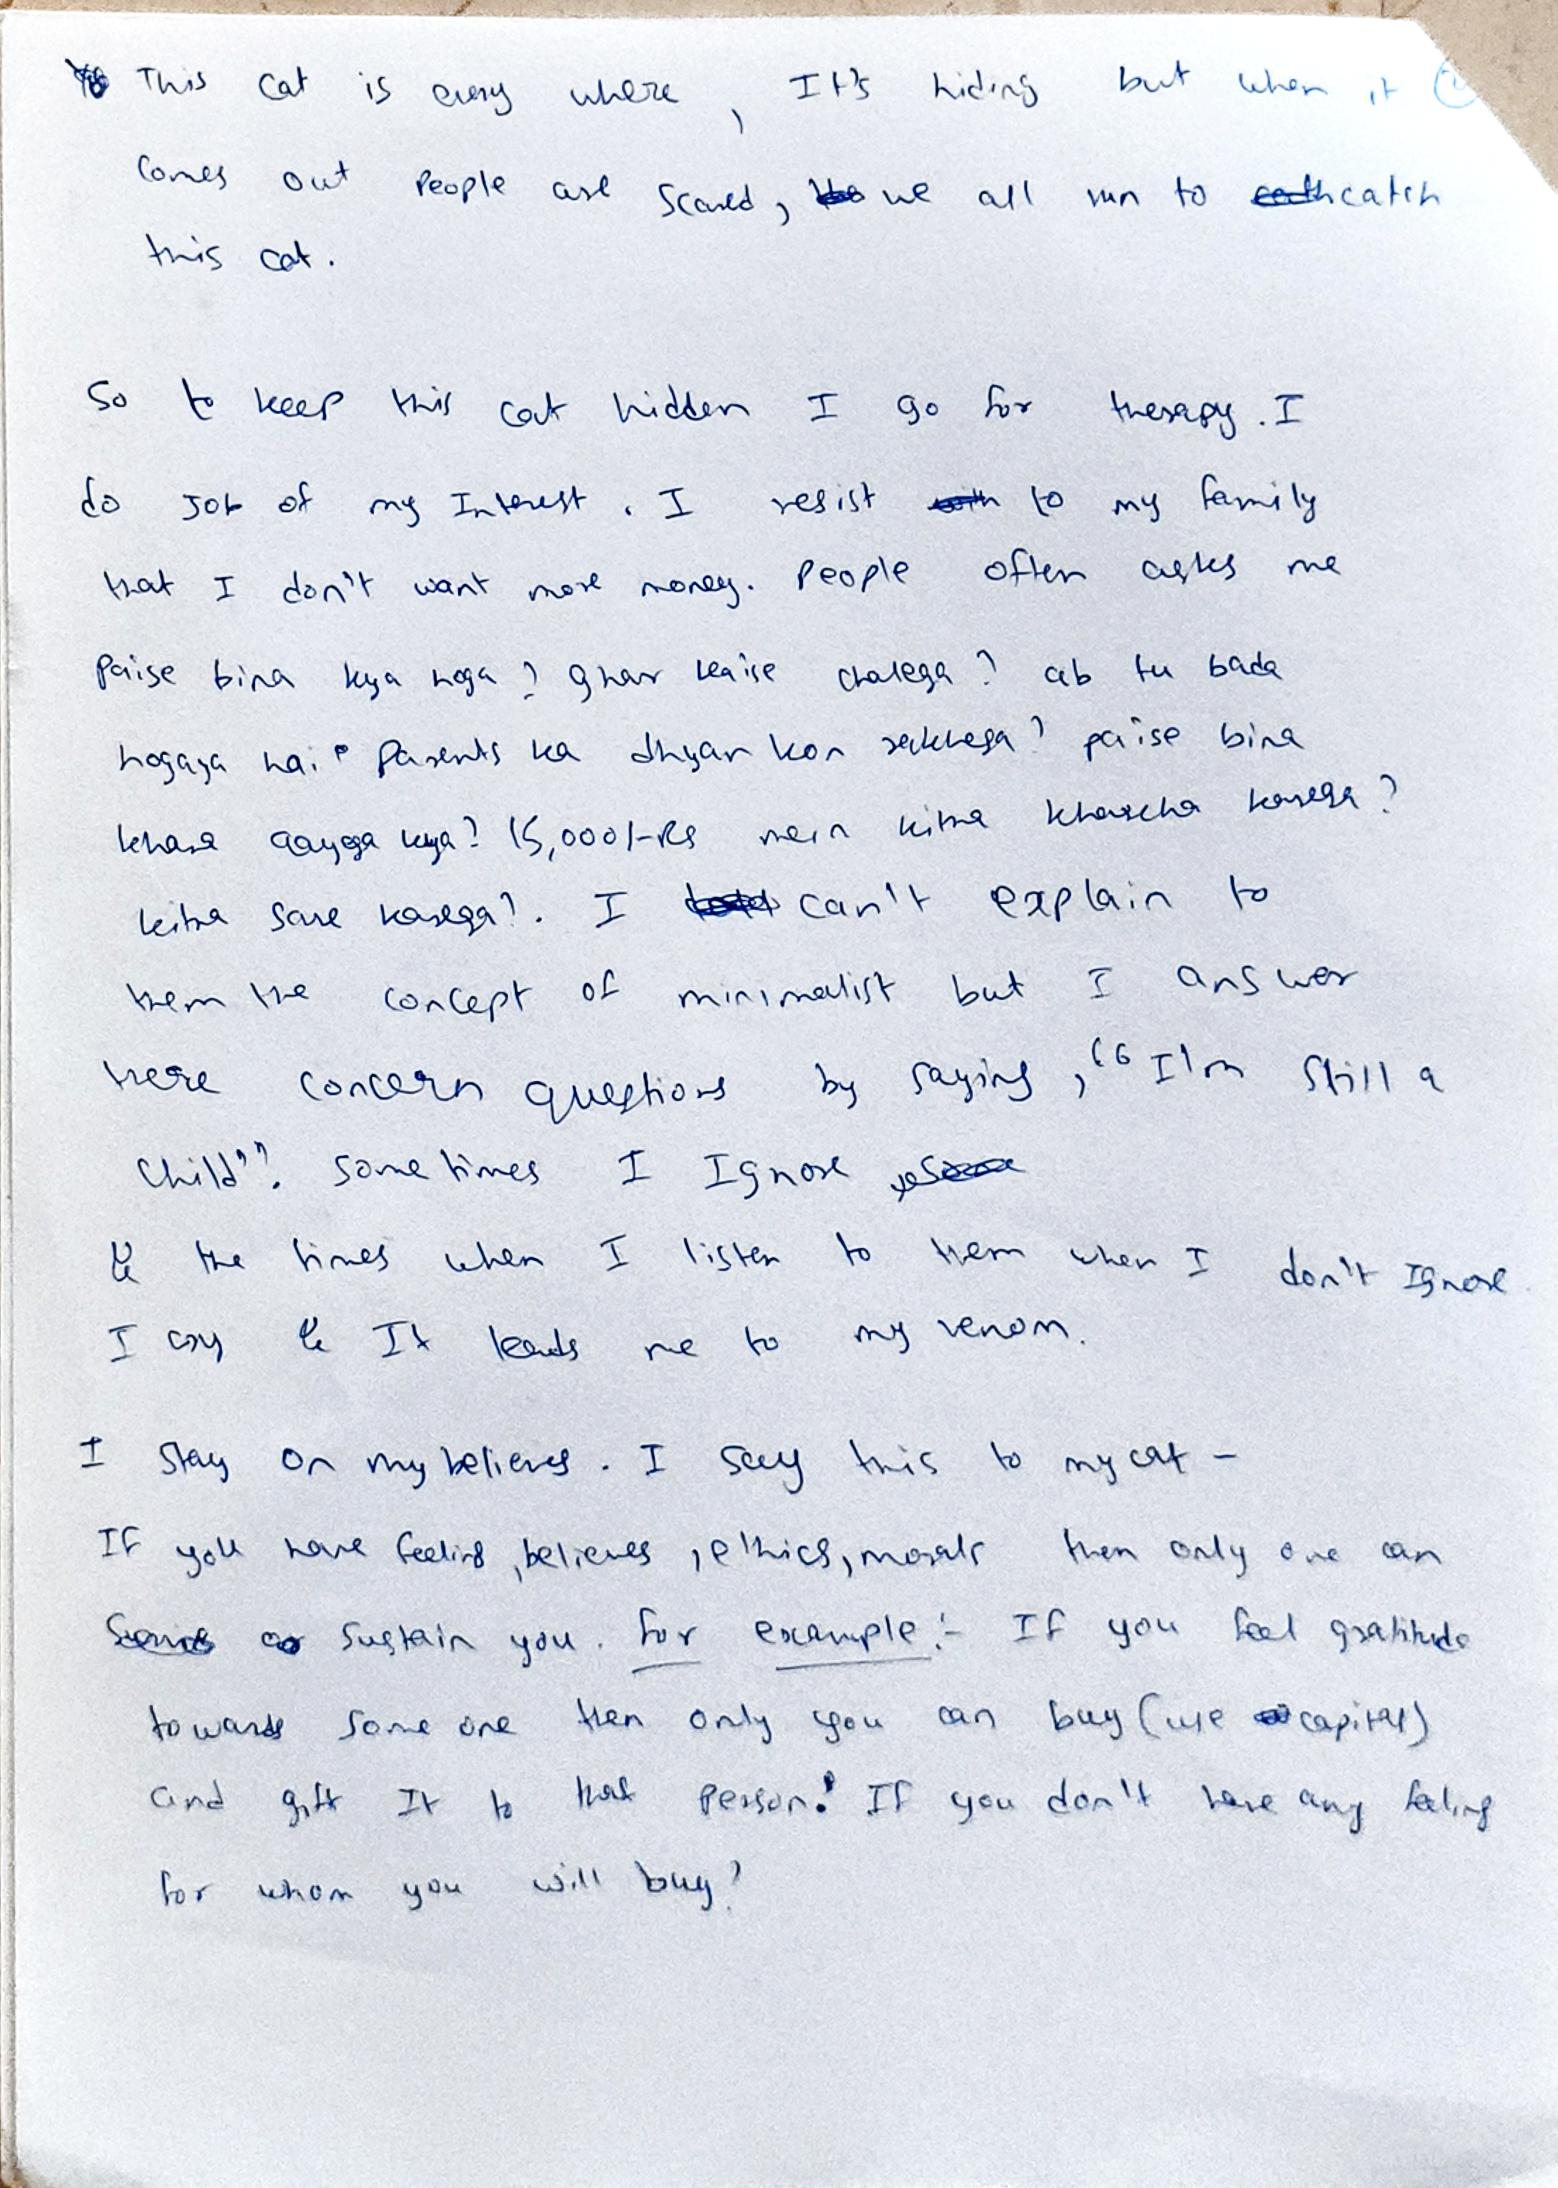 This cat is every where, It's hiding but when it
comes out people are scared, we all run to catch
this cat.
So to keep this cat hidden I go for therapy. I
do Job of my Interest. I resist to my family
that I don't want more money. People often asks me
Paise bina kya hoga? ghar kaise chalega? ab tu bada
hogaya hai. Parents ka dhyan kon rakhega? paise bina
khana aayega kya? 15,000/-Rs mein kitna kharcha karega?
kitna save karega?. I can't explain to
them the concept of minimalist but I answer
there concern questions by saying, "I'm still a
child". Sometimes I Ignore
& the times when I listen to them when I don't Ignore
I cry & It leads me to my venom.
I stay on my believes. I say this to my cat -
If you have feeling, believes, ethics, morals then only one can
sustain you. for example:- If you feel gratitude
towards some one then only you can buy (use capital)
and gift It to that person. If you don't have any feeling
for whom you will buy?